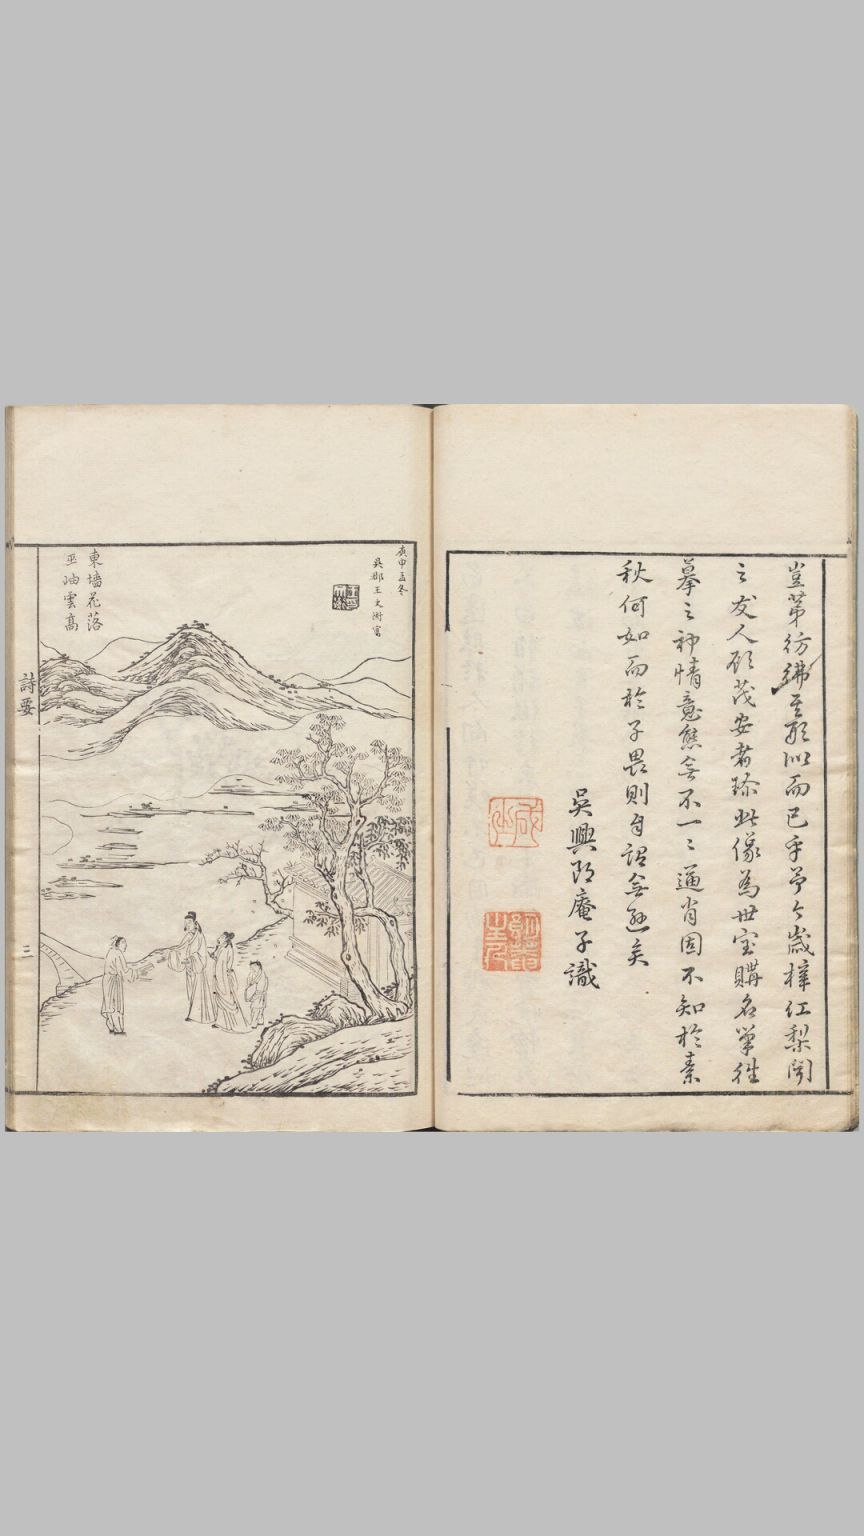 豈第彷彿其形似而已乎予今歲梓紅梨閱
之友人爾茂安者珍此像為世寶購名筆往
摹之神情意態無不一一逼肖固不知於素
秋何如而於予畏則自謂無
吳興即庵子識
庚申孟冬
吳郡王文衡寫
東墻花落
巫岫雲高
詩要
三